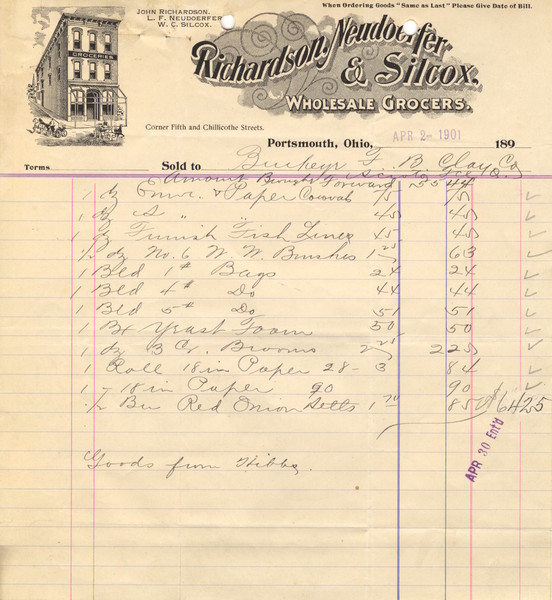 When Ordering Goods "Same as Last" Please Give Date of Bill.
JOHN RICHARDSON.
L. F. NEUDOERFER
W. C. SILCOX.
GROCERIES
Richardson, Neudoerfer
& Silcox.
WHOLESALE GROCERS.
Corner Fifth and Chillicothe Streets.
Portsmouth, Ohio, APR 2- 1901 189
Terms Sold to Buckeye F. B Clay Co
Amount Brought Forward 55 44
1 dz Env. & Paper 15 15
1 dz S " " 45 45
1 dz Furnish Fish Lines 45 45
1/2 dz No. 6 W. W. Brushes 1 25 63
1 Bld 1# Bags 24 24
1 Bld 4# Do 44 44
1 Bld 5# Do 51 51
1 Bx Yeast Foam 50 50
1 dz 3 Cr. Brooms 2 25 2 25
1 Roll 18 in Paper 28- 3 84
1 - 18 in Paper 90 90
1/2 Bu Red Onion Setts 1 70 85 $64 25
APR 30 Ent'd
Goods from Hibbs.